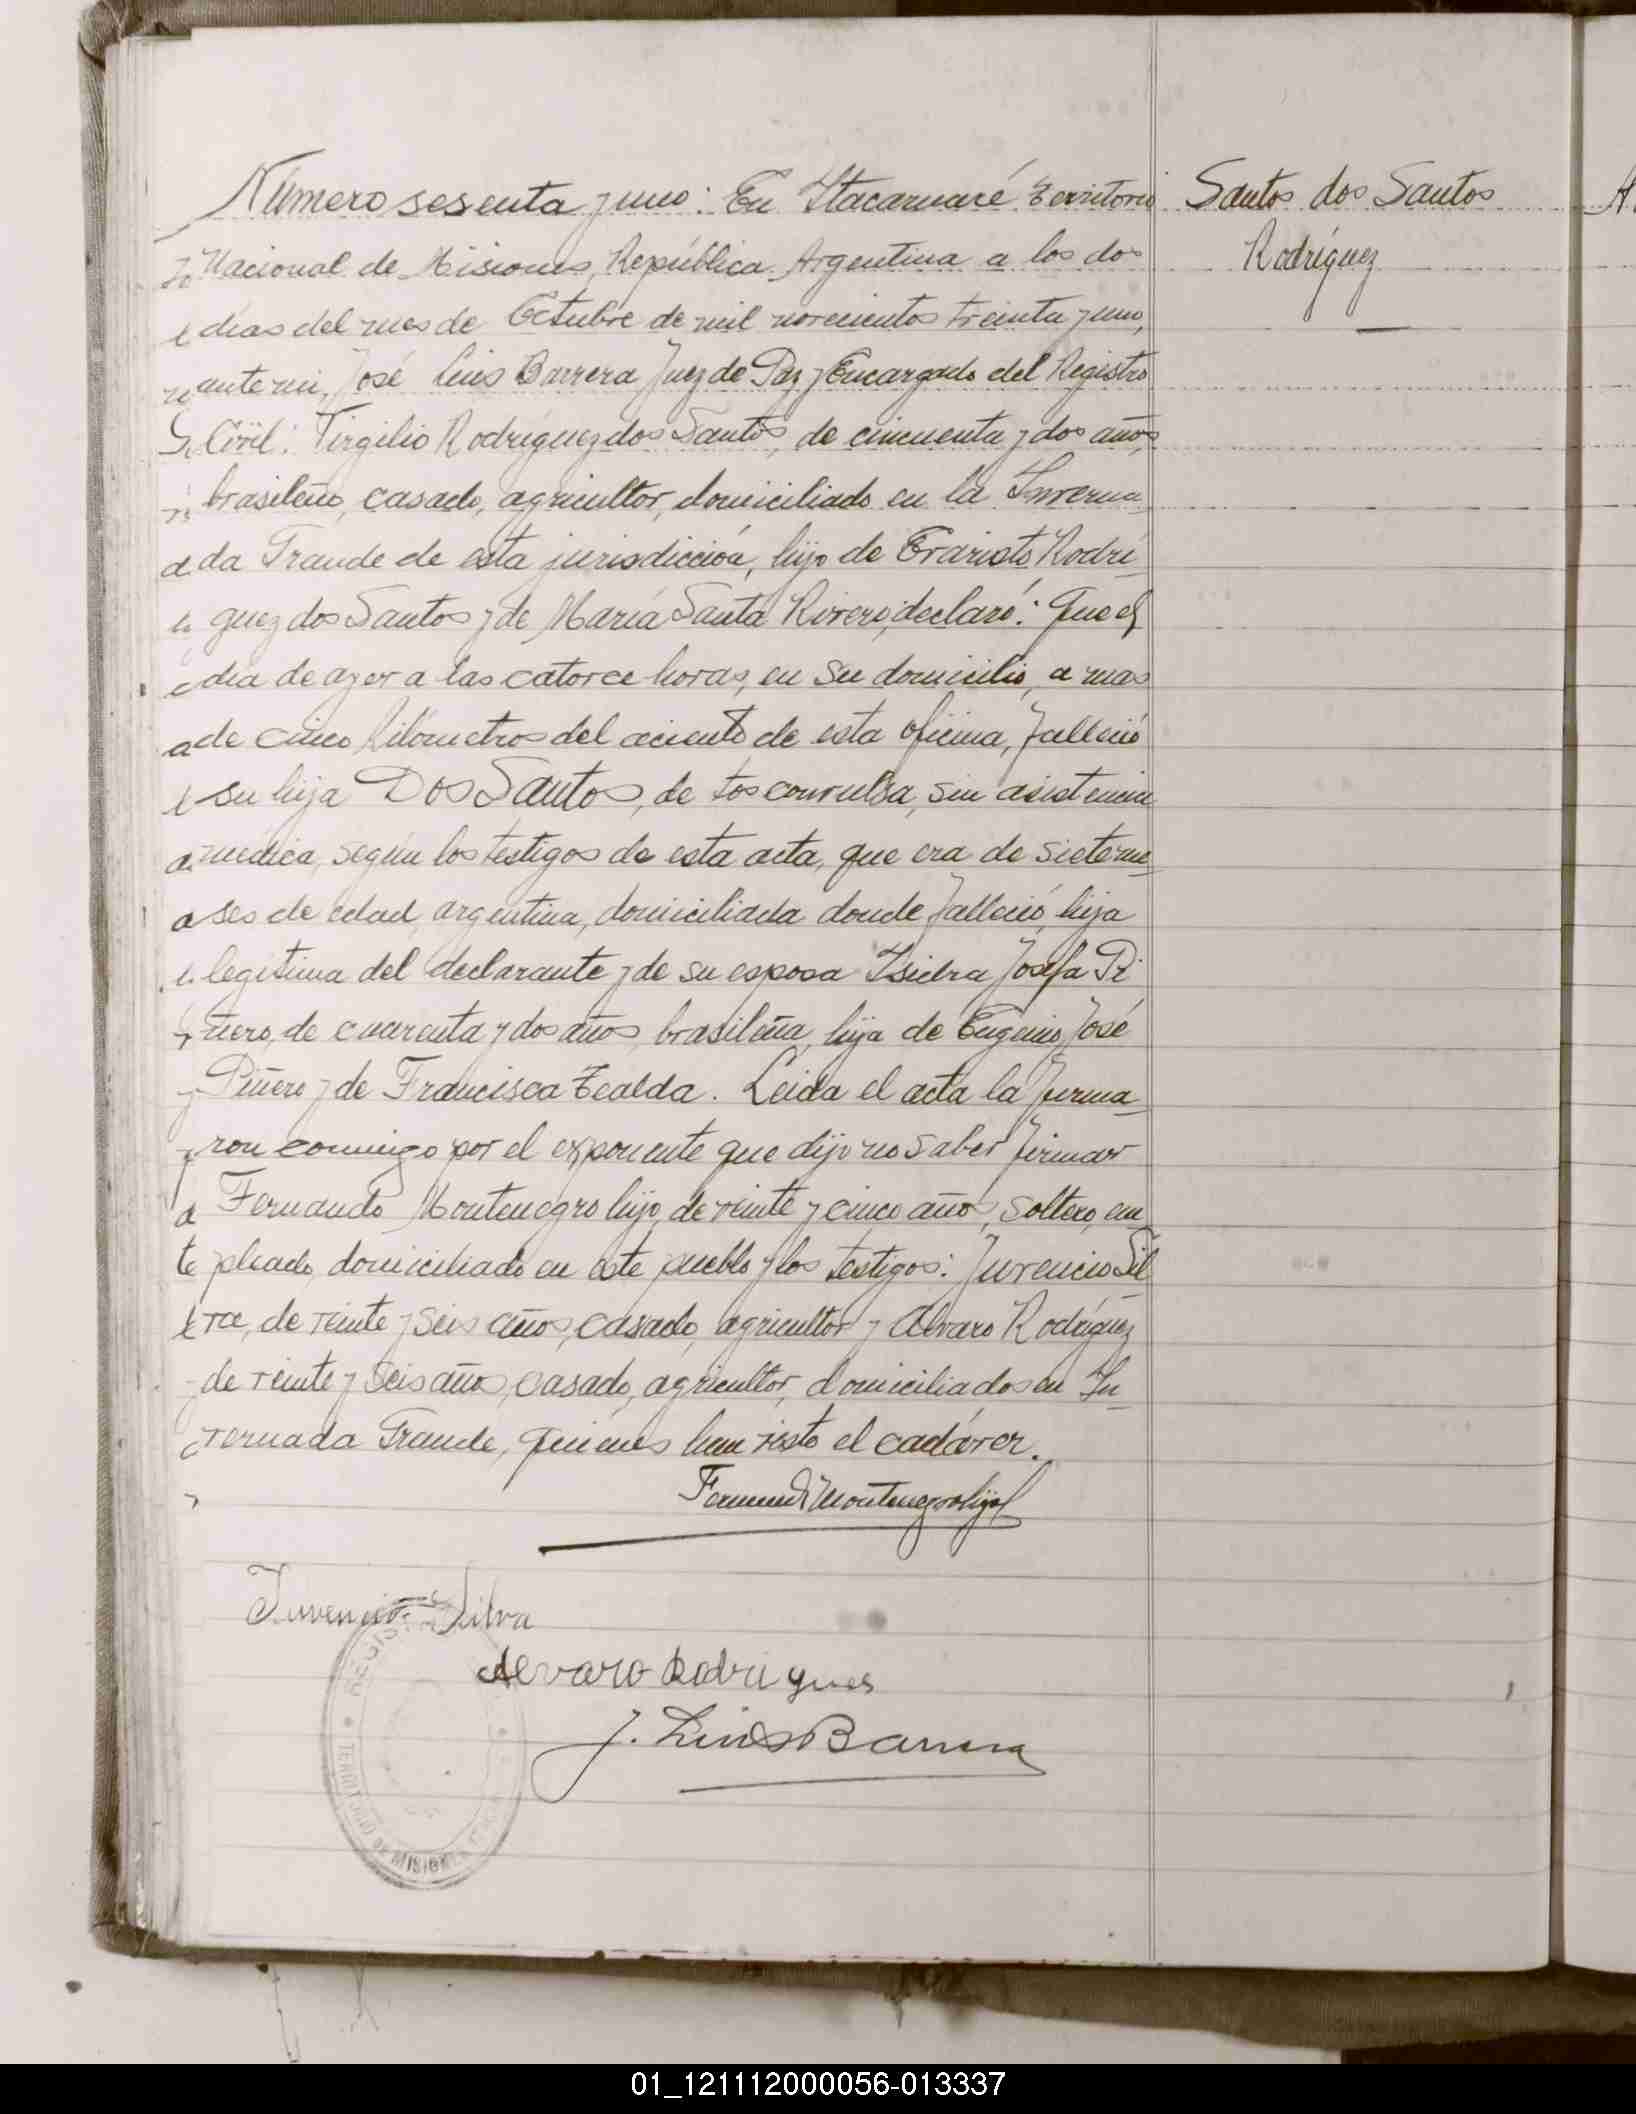 Número sesenta y uno: En Itacaruaré Territorio
Nacional de Misiones, República Argentina a los dos
días del mes de Octubre de mil novecientos treinta y uno,
ante mi, José Luis Barrera Juez de Paz y Encargado del Registro
Civil: Virgilio Rodríguez dos Santos, de cincuenta y dos años,
brasileño, casado, agricultor, domiciliado en la Inverna
da Grande de esta jurisdicción, hijo de Evaristo Rodrí
guez dos Santos y de María Santa Rivero, declaró: Que el
día de ayer a las catorce horas, en su domicilio, a mas
de cinco kilómetros del aciento de esta oficina, falleció
su hija Dos Santos, de tos convulsa, sin asistencia
médica, según los testigos de esta acta, que era de siete me
ses de edad, argentina, domiciliada donde falleció, hija
legítima del declarante y de su esposa Isidra Josefa Pi
ñero, de cuarenta y dos años, brasileña, hija de Eugenio José
Piñero y de Francisca Tealda. Leida el acta la firma-
ron conmigo por el exponente que dijo no saber firmar
Fernando Montenegro hijo, de veinte y cinco años, soltero, em
pleado, domiciliado en este pueblo y los testigos: Juvencio Sil
va, de veinte y seis años, casado, agricultor y Alvaro Rodríguez
de veinte y seis años, casado, agricultor, domiciliados en In-
vernada Grande, quienes han visto el cadáver.
Fernando Montenegro hijo
Juvencio Silva
Alvaro Rodrigues
J. Luis Barrera
TERRITORIO DE MISIONES
Santos dos Santos
Rodríguez
01_121112000056-013337